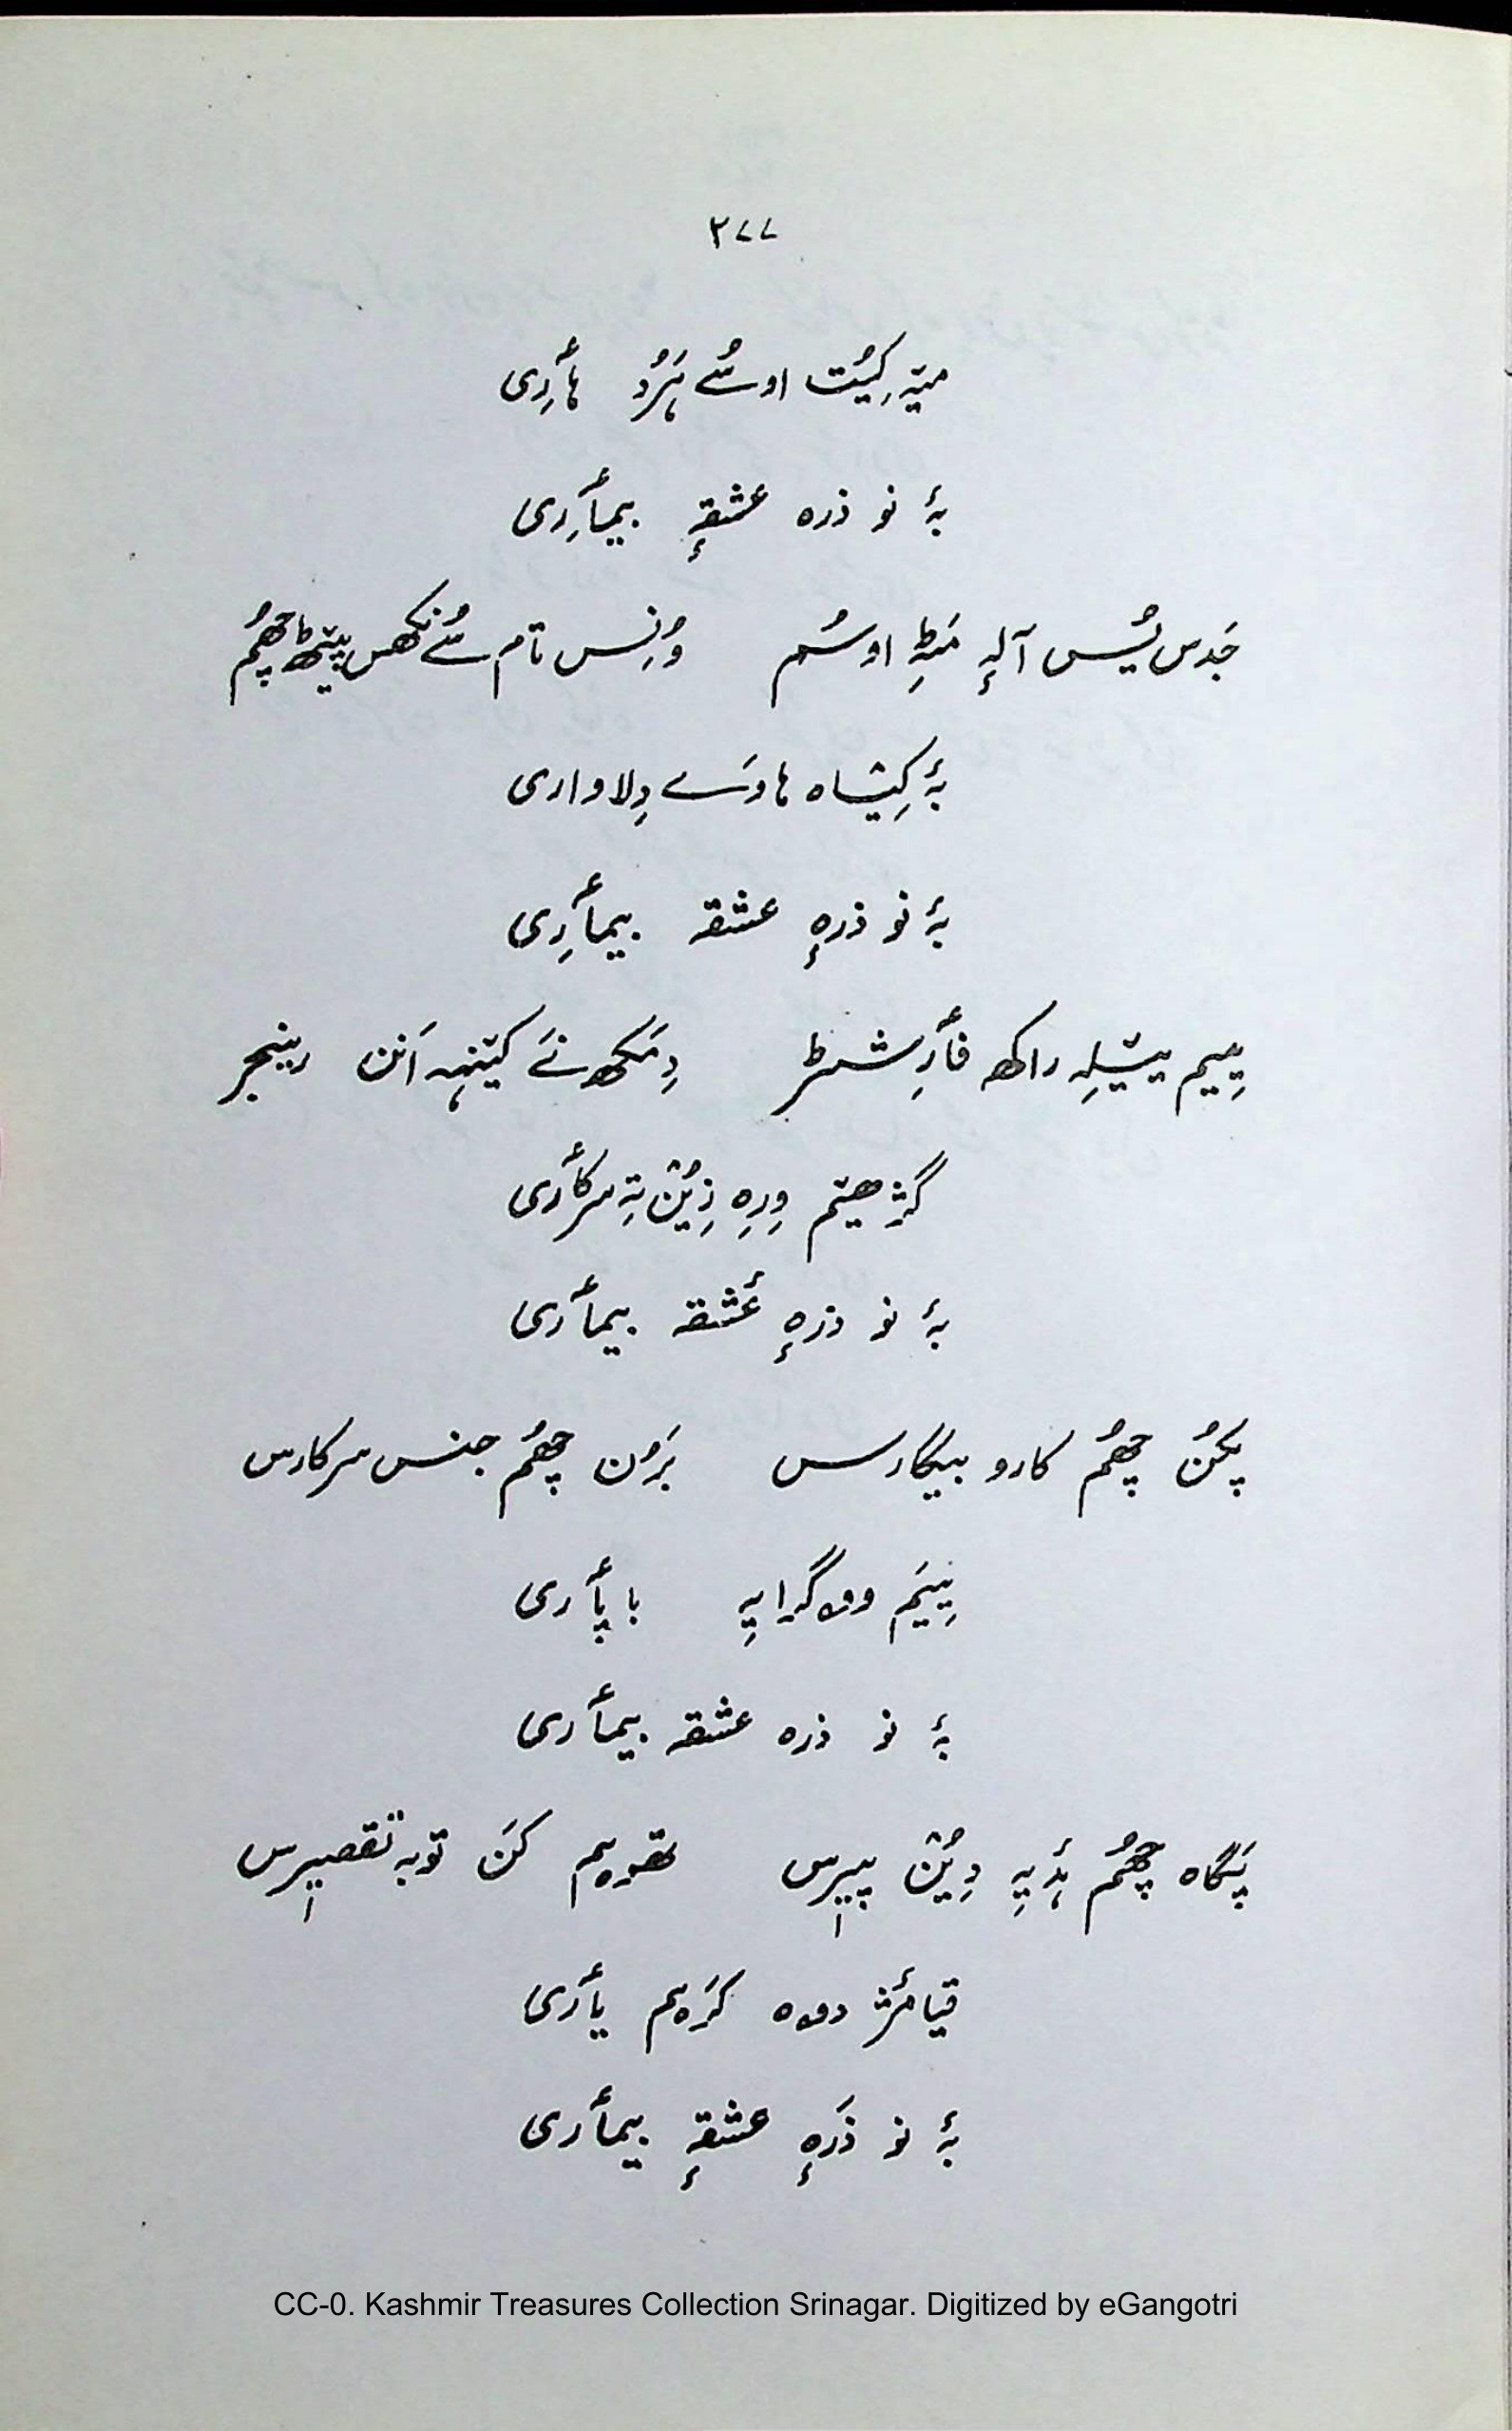 ۲۷۷
میٚہ کِیُت اوسُے ہَرُد ہأرِی
بۂ نو ذرہ عشقہٕ بیمأرِی
جَدس یُس آلہٕ مَٹہِ اوسُم وُنِس تام سُے نکھس پیٹھ چھُم
بۂ کِیتاہ ہاوَے دِلاواری
بۂ نو ذرہٕ عشقہ بیمأرِی
یِییم ییٚلہِ راکھ فأرِشٹر دِمَکھ نَے کینٛہہ اَنن رینجر
گژھیٚم وِرہِ زِیُن تہِ سرکأری
بۂ نو ذرہٕ عٔشقہ بیمأری
پکُن چھُم کارو بیگارس بَرُن چھُم جنس سرکارس
نِییَم ووگرایہِ باپأری
بۂ نو ذرہ عشقہ بیمأری
پَگاہ چھُم ۂدیہِ دِیُن پیٖرس کَن توبہ تقصیٖرس
قیامٔژ دوہ کرَہم یأری
بۂ نو ذَرہٕ عشقہٕ بیمأری
CC-0. Kashmir Treasures Collection Srinagar. Digitized by eGangotri